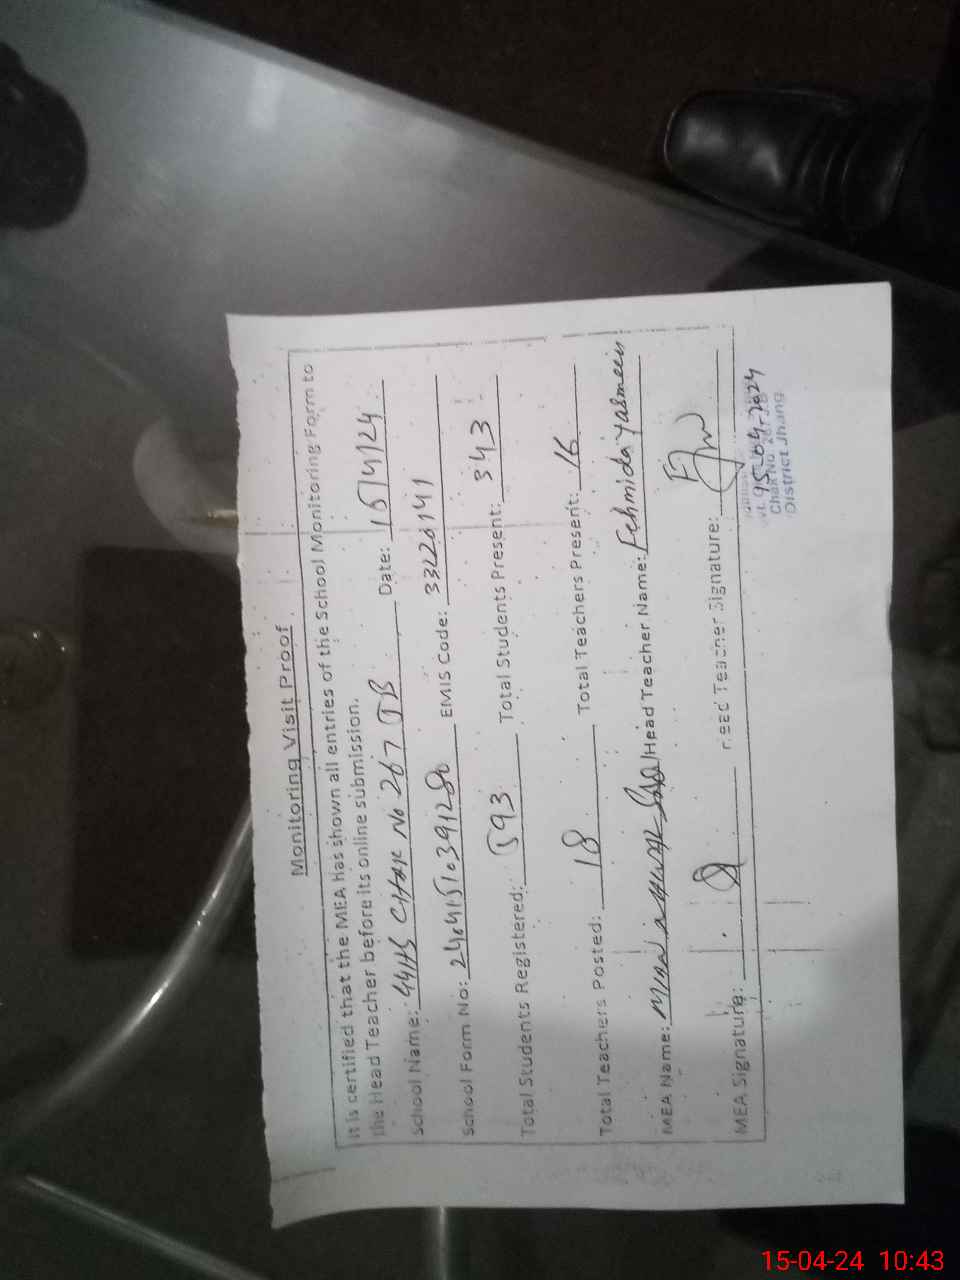 Monitoring Visit Proof
It is certified that the MEA has shown all entries of the School Monitoring Form to
the Head Teacher before its online submission.
School Name: GGHS CHAK No 267 JB Date: 15/4/24
School Form No: EMIS Code: 33220141
Total Students Registered: 593 Total Students Present: 343
Total Teachers Posted: 18 Total Teachers Present: 16
MEA Name: Head Teacher Name: Fehmida Yasmeen
MEA Signature: Head Teacher Signature:
15-04-2024
Chak No
District Jhang
15-04-24 10:43